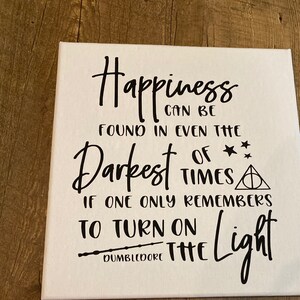 Happiness
CAN BE
FOUND IN EVEN THE
Darkest OF
TIMES
IF ONE ONLY REMEMBERS
TO TURN ON
THE Light
DUMBLEDORE